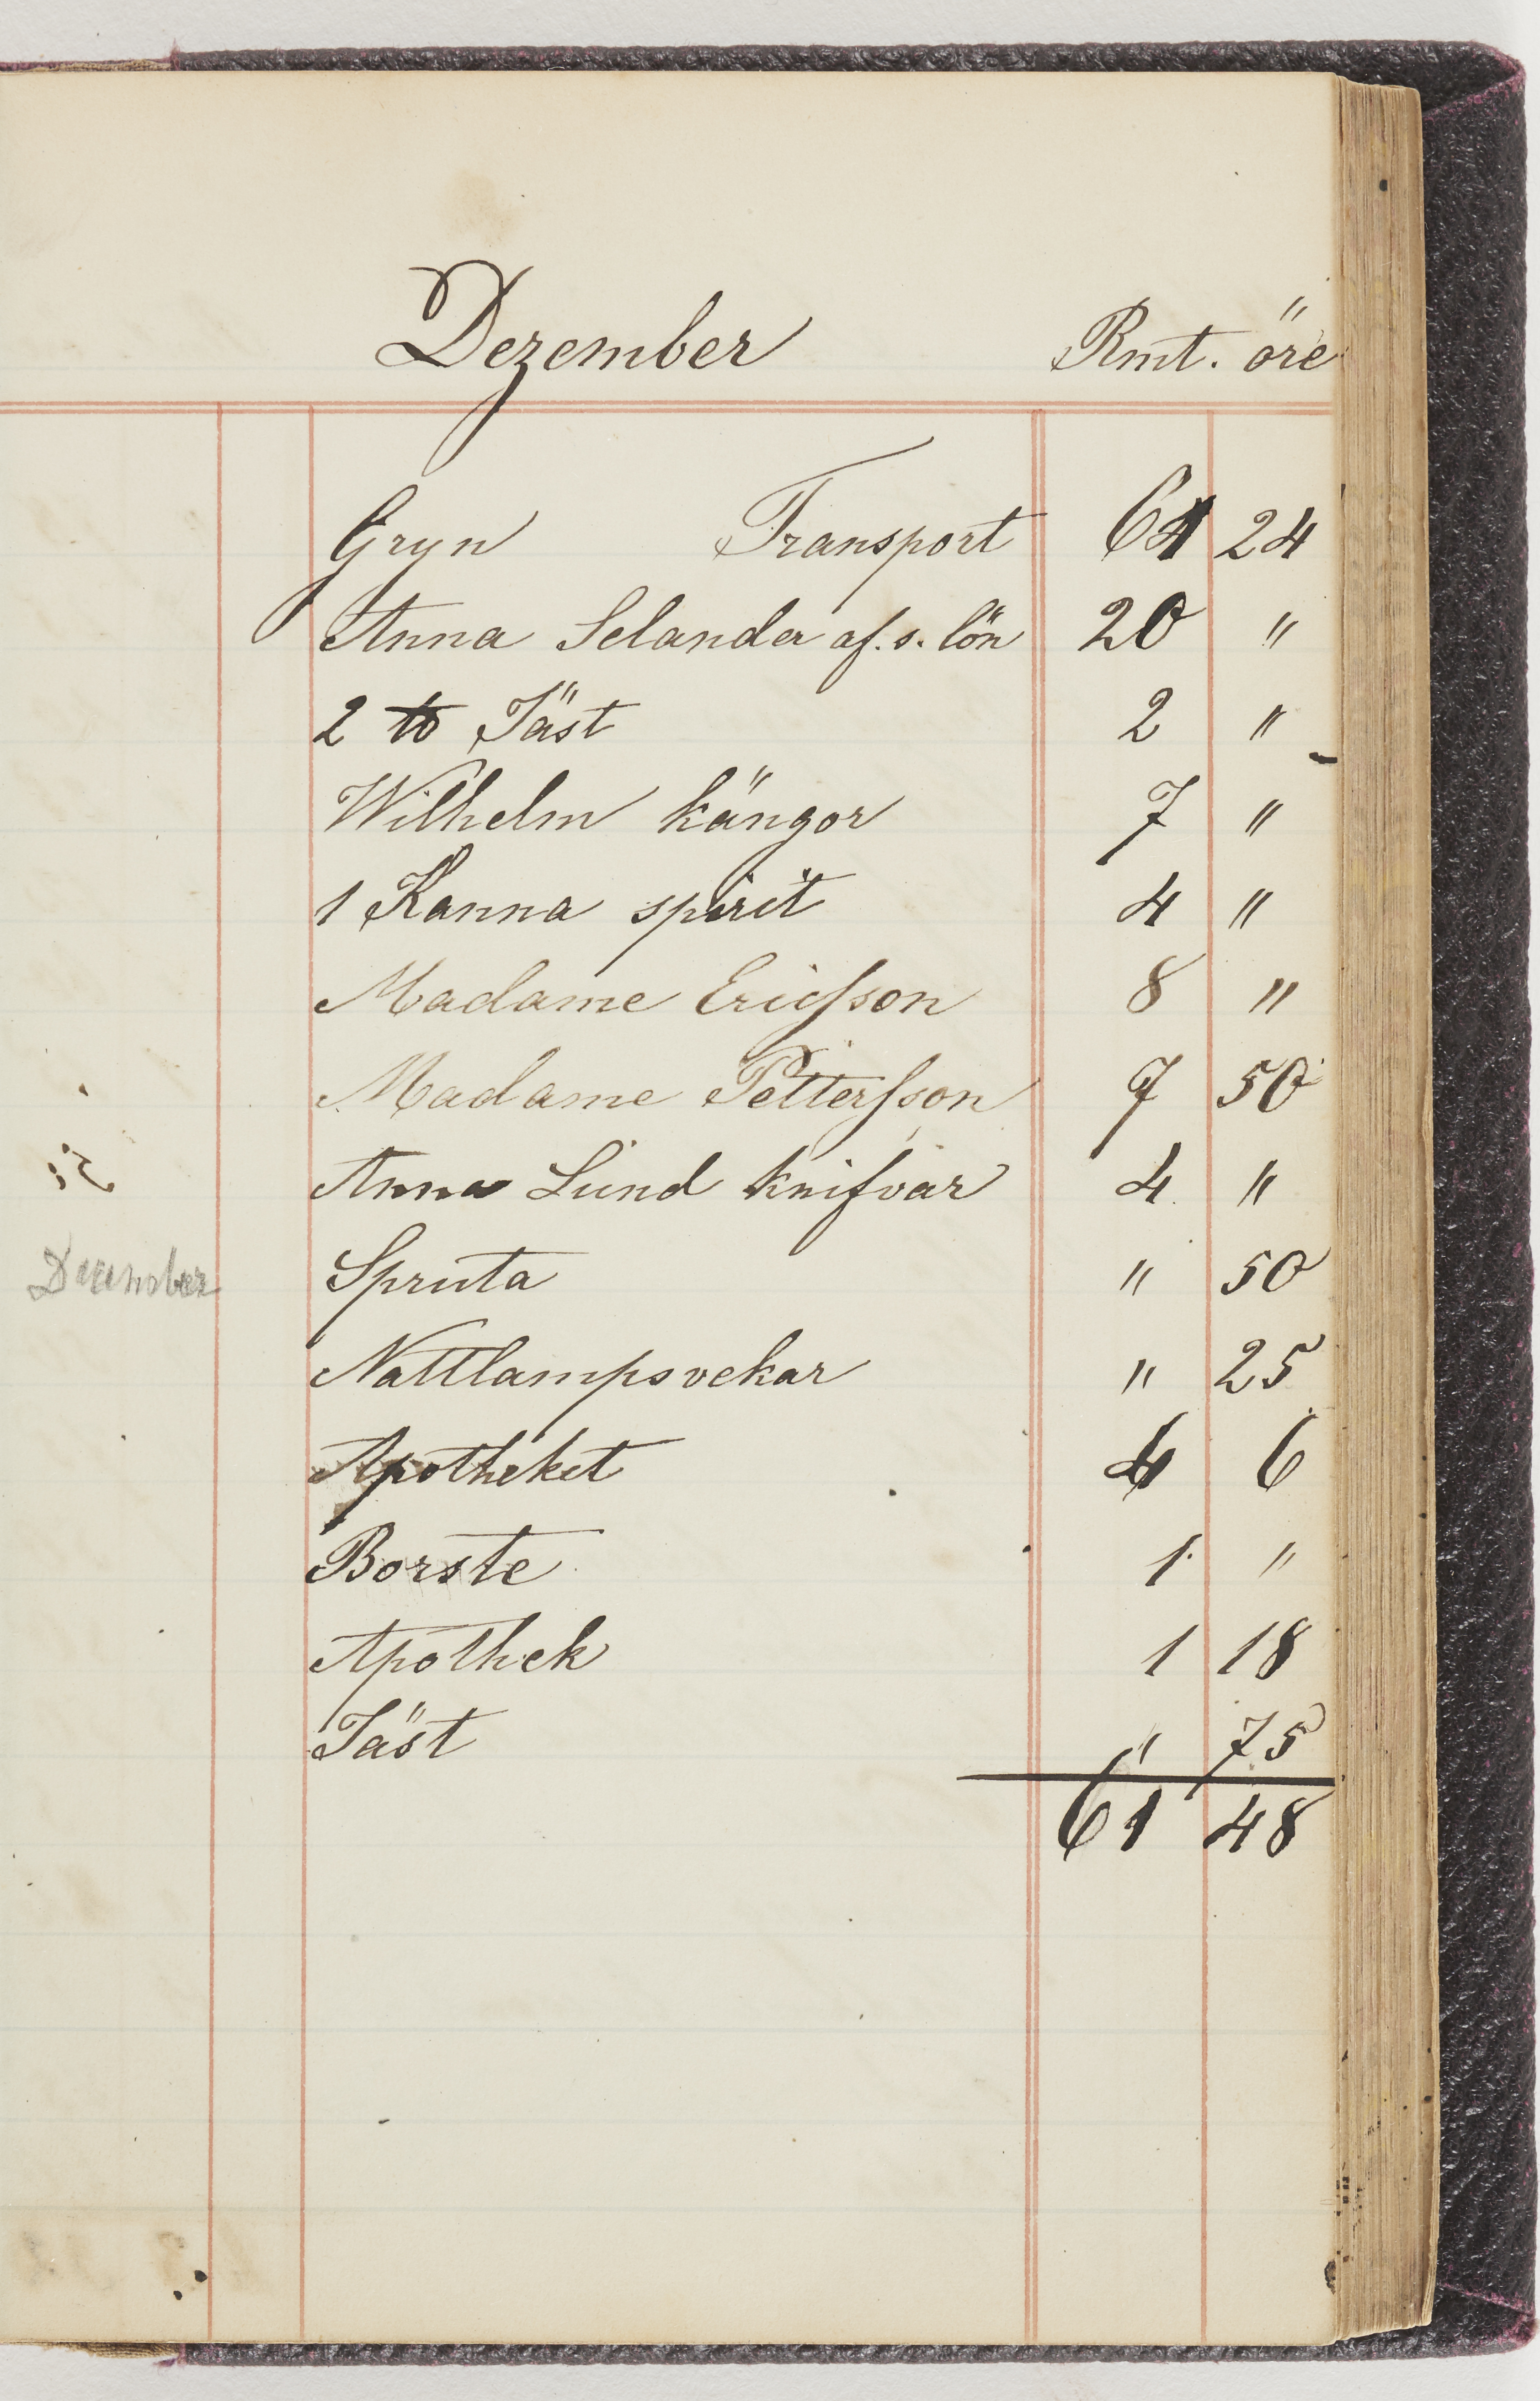 Dezember Rmt. öre
Gryn Transport 61 24
Anna Selander af. s. lön 20 "
2 ℔ Jäst 2 "
Wilhelm kängor 7 "
1 Kanna spirit 4 "
Madame Ericsson 8 "
Madame Pettersson 7 50
Anna Lund knifvar 4 "
December Spruta " 50
Nattlampsvekar " 25
Apotheket 4 6
Borste 1 "
Apothek 1 18
Jäst " 75
61 48